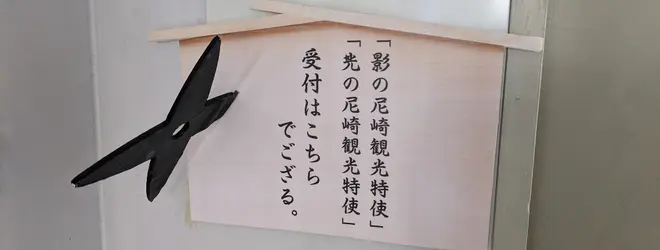 「影の尼崎観光特使」
「光の尼崎観光特使」
受付はこちら
でござる。